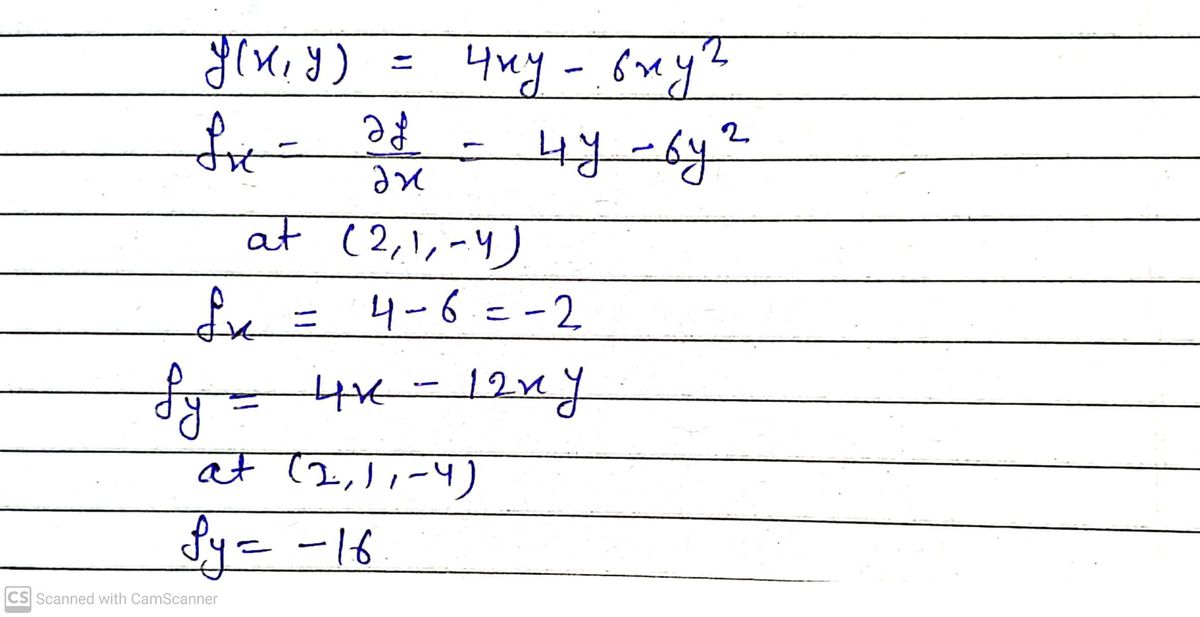 f(x,y) = 4xy - 6xy²
fx = ∂f/∂x = 4y - 6y²
at (2,1,-4)
fx = 4-6 = -2
fy = 4x - 12xy
at (2,1,-4)
fy = -16
CS Scanned with CamScanner